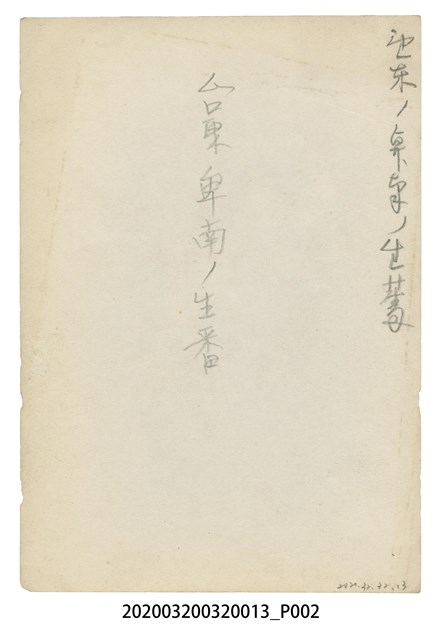 台東ノ卑南ノ生蕃
台東卑南ノ生番
2020.32.32.13
202003200320013_P002